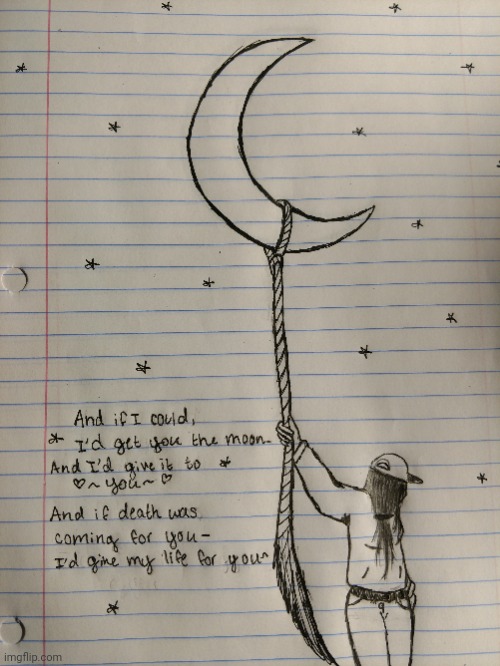 And if I could,
I'd get you the moon-
And I'd give it to
♡~you~♡
And if death was
coming for you-
I'd give my life for you~
imgflip.com